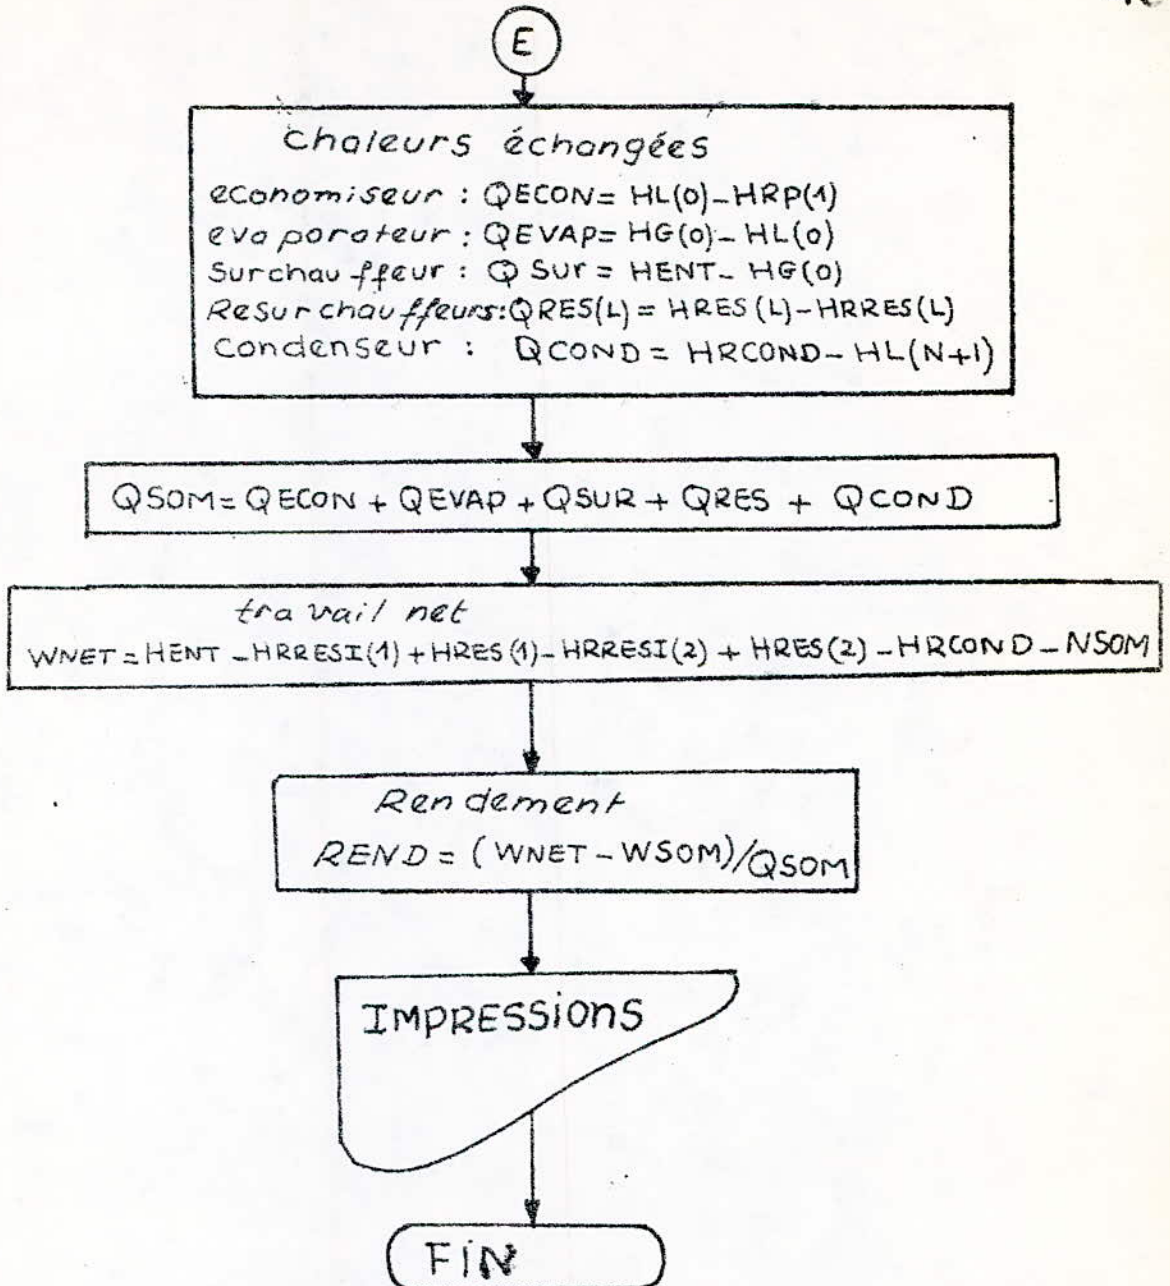 E
Chaleurs échangées
economiseur : QECON= HL(0)-HRP(1)
evaporateur : QEVAP= HG(0)-HL(0)
Surchauffeur : QSUr = HENT-HG(0)
Resurchauffeurs:QRES(L) = HRES(L)-HRRES(L)
Condenseur : QCOND = HRCOND-HL(N+1)
QSOM= QECON + QEVAP + QSUR + QRES + QCOND
travail net
WNET = HENT -HRRESI(1) +HRES(1)-HRRESI(2) + HRES(2) -HRCOND-NSOM
Rendement
REND = (WNET-WSOM)/QSOM
IMPRESSIONS
FIN